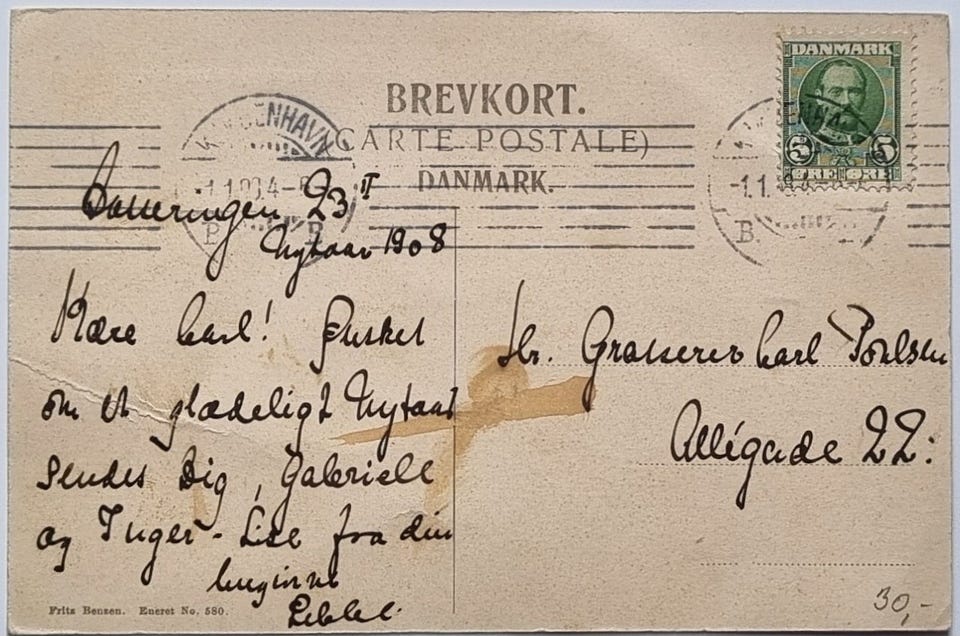 BREVKORT.
(CARTE POSTALE)
DANMARK.
DANMARK
5 5
ØRE ØRE
KJØBENHAVN
B.
1.1.
23 II
Nytaar 1908
Kære Carl! Ønsket
om et glædeligt Nytaar
sendes Dig, Gabriele
og Inger-Lise fra din
Hr. Grosserer Carl Poulsen
Allégade 22:
Fritz Benzen. Eneret No. 580.
30,-